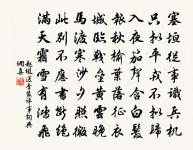 塞垣從事識兵機
只擬平戎不擬歸
入夜笳聲含白髮
報秋榆葉落征衣
城臨戰壘黃雲晚
馬渡寒沙夕照微
此別不應書斷絕
滿天霜雪有鴻飛
趙嘏送李裴評事詞典
網真